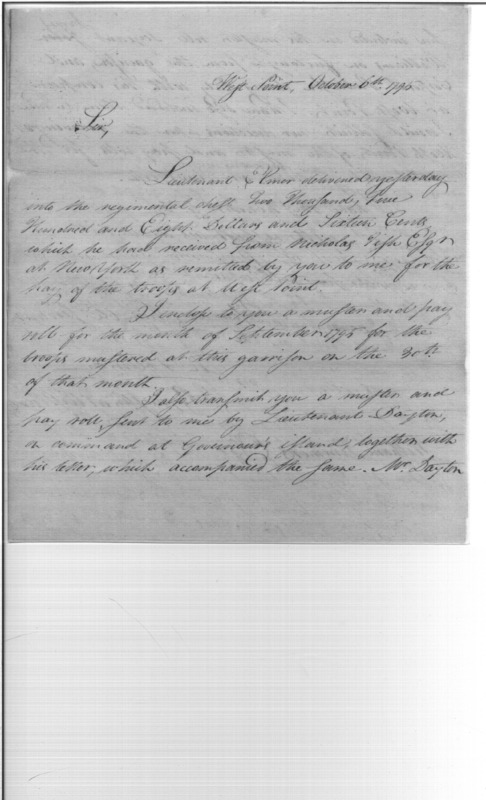 West Point, October 6th. 1795
Sir,
Lieutenant Elmer delivered yesterday
into the regimental chest Two Thousand, Five
Hundred and Eight Dollars and Sixteen Cents,
which he had received from Nicholas Fish Esqr
at New York as remitted by you to me for the
pay of the troops at West Point.
I inclose to you a muster and pay
roll for the month of September 1795 for the
troops mustered at this garrison on the 30th
of that month
I also transmit you a muster and
pay roll, sent to me by Lieutenant Dayton,
on command at Governour's island, together with
his letter, which accompanied the same. Mr. Dayton